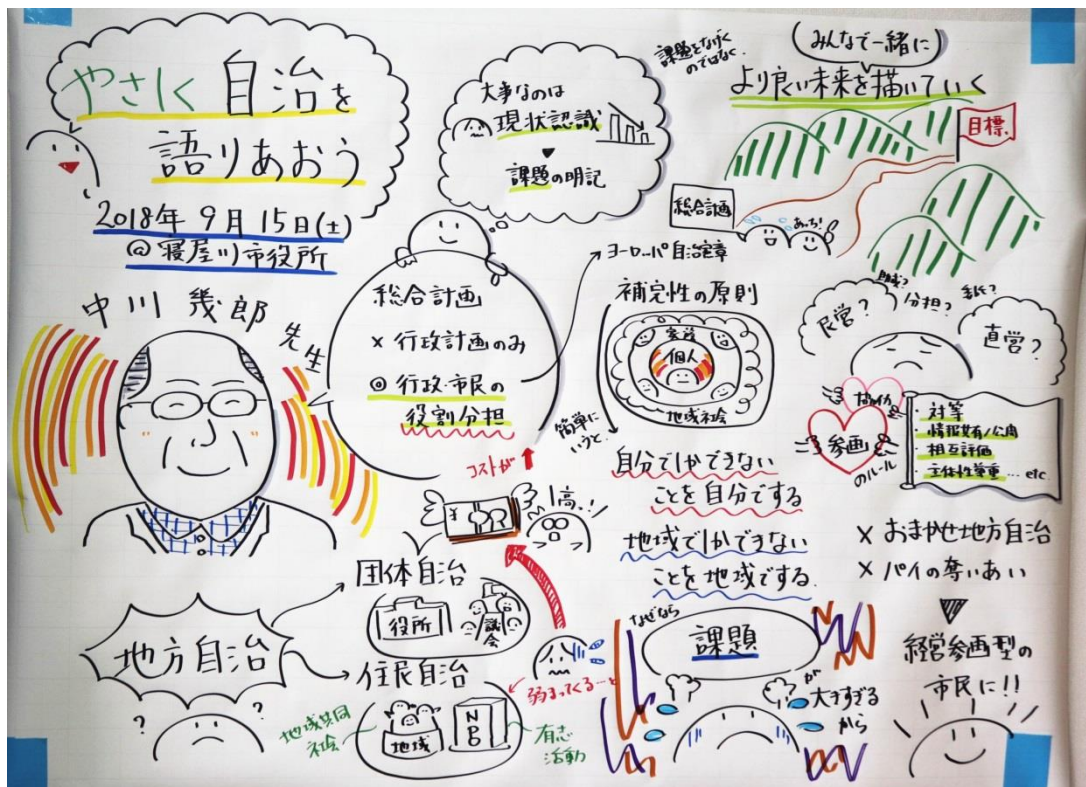 やさしく自治を
語りあおう
2018年9月15日(土)
@寝屋川市役所
中川幾郎
先生
大事なのは
現状認識
課題の明記
課題をなげく
のではなく
みんなで一緒に
より良い未来を描いていく
目標
総合計画
あっち!
総合計画
× 行政計画のみ
◎ 行政・市民の
役割分担
ヨーロッパ自治憲章
補完性の原則
家族
個人
地域社会
簡単に
いうと、
自分でしかできない
ことを自分でする
地域でしかできない
ことを地域でする.
なぜなら
課題
が
大きすぎる
から
民営?
分担?
委託?
直営?
協働
参画
のルール
・対等
・情報共有/公開
・相互評価
・主体性尊重…etc
× おまかせ地方自治
× パイの奪いあい
経営参画型の
市民に!!
コストが
高っ!
地方自治
?
?
団体自治
役所
議会
住民自治
地域
NPO
地域共同
社会
有志
活動
弱まってくる…と